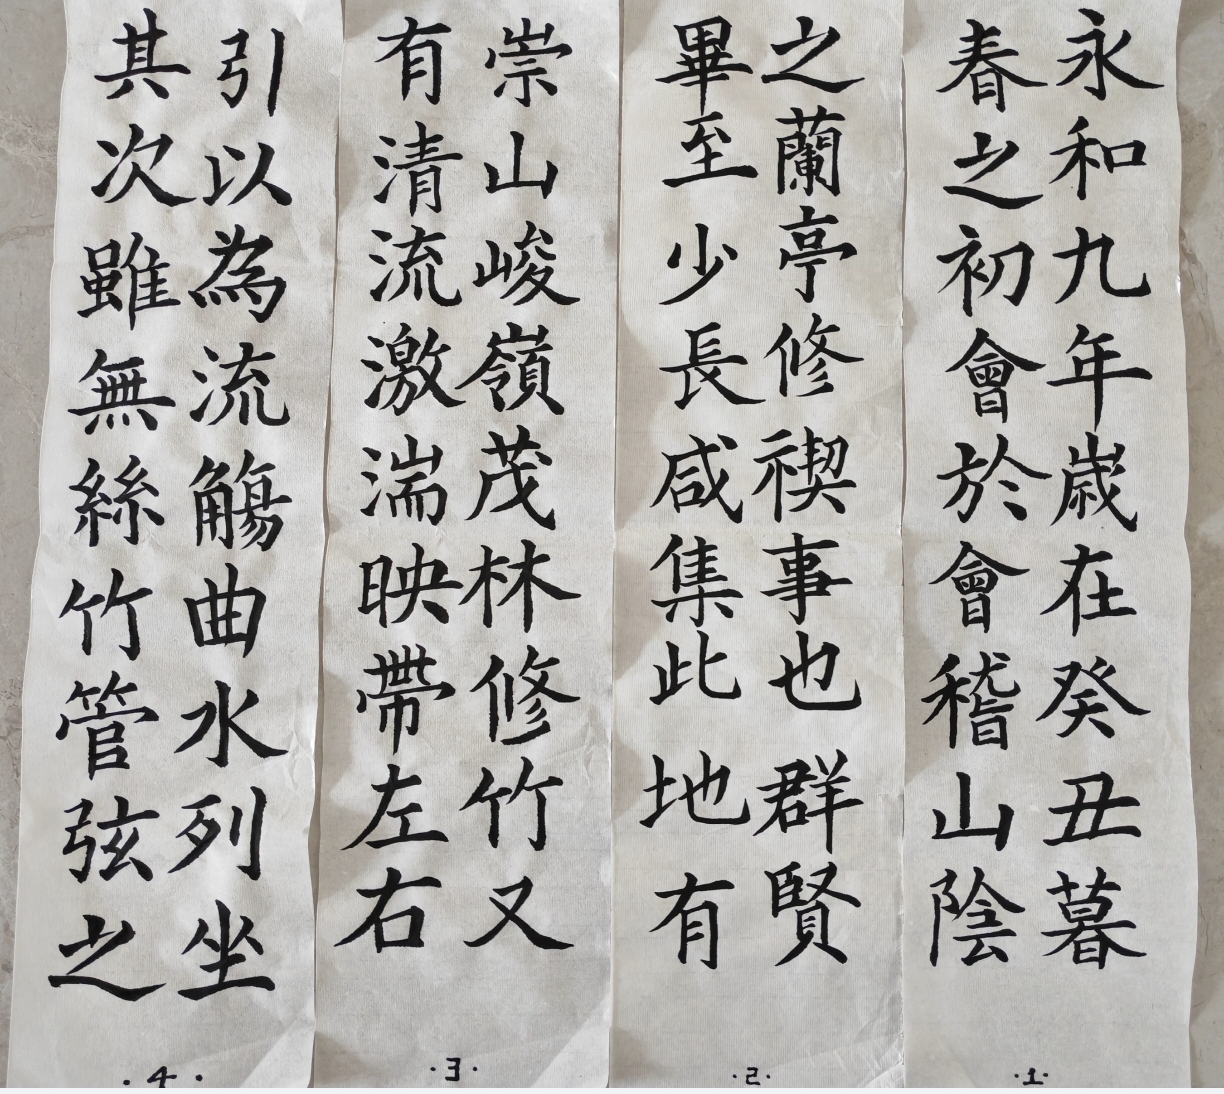 永和九年歲在癸丑暮
春之初會於會稽山陰
之蘭亭修禊事也群賢
畢至少長咸集此地有
崇山峻嶺茂林修竹又
有清流激湍映帶左右
引以為流觴曲水列坐
其次雖無絲竹管弦之
·1·
·2·
·3·
·4·